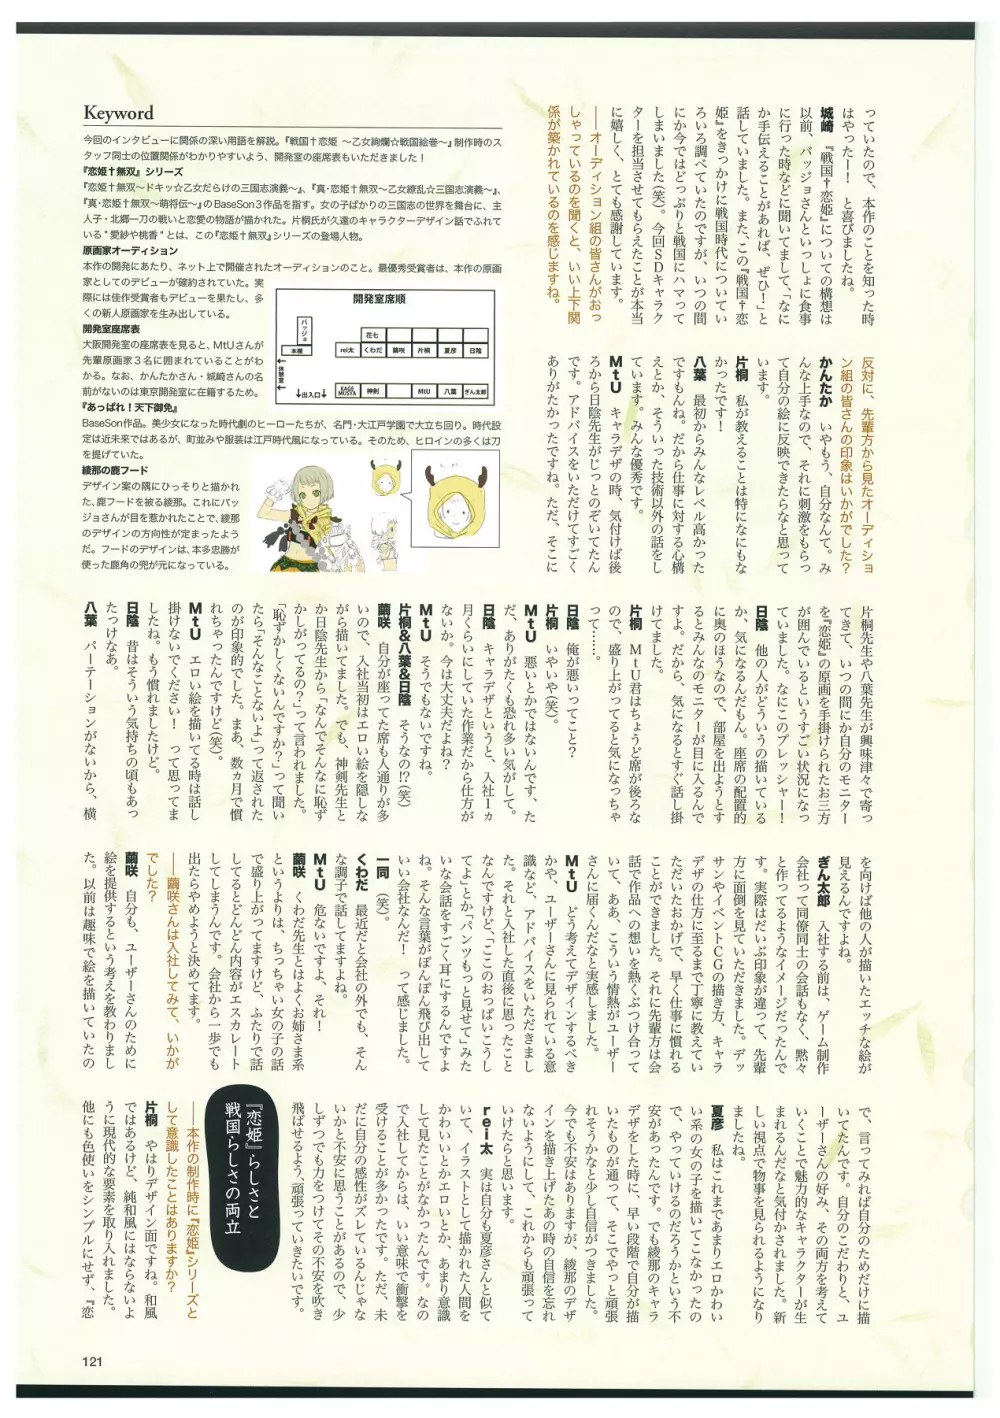 Keyword
今回のインタビューに関係の深い用語を解説。『戦国†恋姫 ～乙女絢爛☆戦国絵巻～』制作時のス
タッフ同士の位置関係がわかりやすいよう、開発室の座席表もいただきました！
『恋姫†無双』シリーズ
『恋姫†無双～ドキッ☆乙女だらけの三国志演義～』、『真・恋姫†無双～乙女繚乱☆三国志演義～』、
『真・恋姫†無双～萌将伝～』のBaseSon３作品を指す。女の子ばかりの三国志の世界を舞台に、主
人子・北郷一刀の戦いと恋愛の物語が描かれた。片桐氏が久遠のキャラクターデザイン話でふれて
いる"愛紗や桃香"とは、この『恋姫†無双』シリーズの登場人物。
原画家オーディション
本作の開発にあたり、ネット上で開催されたオーディションのこと。最優秀受賞者は、本作の原画
家としてのデビューが確約されていた。実
際には佳作受賞者もデビューを果たし、多
くの新人原画家を生み出している。
開発室座席表
大阪開発室の座席表を見ると、MtUさんが
先輩原画家３名に囲まれていることがわ
かる。なお、かんたかさん・城崎さんの名
前がないのは東京開発室に在籍するため。
『あっぱれ！天下御免』
BaseSon作品。美少女になった時代劇のヒーローたちが、名門・大江戸学園で大立ち回り。時代設
定は近未来ではあるが、町並みや服装は江戸時代風になっている。そのため、ヒロインの多くは刀
を提げていた。
綾那の鹿フード
デザイン案の隅にひっそりと描かれ
た、鹿フードを被る綾那。これにバッ
ジョさんが目を惹かれたことで、綾那
のデザインの方向性が定まったよう
だ。フードのデザインは、本多忠勝が
使った鹿角の兜が元になっている。
開発室席順
バッジョ
本棚
休憩室
花七
rei太 くわだ 繭咲 片桐 夏彦 日陰
↓出入口↓
EAGE MUSTA 神剣 MtU 八葉 ぎん太郎
っていたので、本作のことを知った時
はやったー！ と喜びましたね。
城崎 『戦国†恋姫』についての構想は
以前、バッジョさんといっしょに食事
に行った時などに聞いてまして、「なに
か手伝えることがあれば、ぜひ！」と
話していました。また、この『戦国†恋
姫』をきっかけに戦国時代についてい
ろいろ調べていたのですが、いつの間
にか今ではどっぷりと戦国にハマって
しまいました(笑)。今回SDキャラク
ターを担当させてもらえたことが本当
に嬉しく、とても感謝しています。
――オーディション組の皆さんがおっ
しゃっているのを聞くと、いい上下関
係が築かれているのを感じますね。
反対に、先輩方から見たオーディショ
ン組の皆さんの印象はいかがでした？
かんたか いやもう、自分なんて。み
んな上手なので、それに刺激をもらっ
て自分の絵に反映できたらなと思って
います。
片桐 私が教えることは特になにもな
かったです！
八葉 最初からみんなレベル高かった
ですもんね。だから仕事に対する心構
えとか、そういった技術以外の話をし
ています。みんな優秀です。
MtU キャラデザの時、気付けば後
ろから日陰先生がじっとのぞいてたん
です。アドバイスをいただけてすごく
ありがたかったですね。ただ、そこに
片桐先生や八葉先生が興味津々で寄っ
てきて、いつの間にか自分のモニター
を『恋姫』の原画を手掛けられたお三方
が囲んでいるというすごい状況になっ
ていました。なにこのプレッシャー！
日陰 他の人がどういうの描いている
か、気になるんだもん。座席の配置的
に奥のほうなので、部屋を出ようとす
るとみんなのモニターが目に入るんで
すよ。だから、気になるとすぐ話し掛
けてました。
片桐 MtU君はちょうど席が後ろな
ので、盛り上がってると気になっちゃ
って……。
日陰 俺が悪いってこと？
片桐 いやいや(笑)。
MtU 悪いとかではないんです、た
だ、ありがたくも恐れ多い気がして。
日陰 キャラデザというと、入社1ヵ
月くらいにしていた作業だから仕方が
ないか。今は大丈夫だよね？
MtU そうでもないですね。
片桐&八葉&日陰 そうなの!?(笑)
繭咲 自分が座ってた席も人通りが多
いので、入社当初はエロい絵を隠しな
がら描いてました。でも、神剣先生と
か日陰先生から「なんでそんなに恥ず
かしがってるの？」って言われました。
「恥ずかしくないんですか？」って聞い
たら「そんなことないよ」って返された
のが印象的でした。まあ、数ヵ月で慣
れちゃったんですけど(笑)。
MtU エロい絵を描いてる時は話し
掛けないでください！ って思ってま
したね。もう慣れましたけど。
日陰 昔はそういう気持ちの頃もあっ
たっけなあ。
八葉 パーテーションがないから、横
を向けば他の人が描いたエッチな絵が
見えるんですよね。
ぎん太郎 入社する前は、ゲーム制作
会社って同僚同士の会話もなく、黙々
と作ってるようなイメージだったんで
す。実際はだいぶ印象が違って、先輩
方に面倒を見ていただきました。デッ
サンやイベントCGの描き方、キャラ
デザの仕方に至るまで丁寧に教えてい
ただいたおかげで、早く仕事に慣れる
ことができました。それに先輩方は会
話で作品への想いを熱くぶつけ合って
いて、ああ、こういう情熱がユーザー
さんに届くんだなと実感しました。
MtU どう考えてデザインするべき
かや、ユーザーさんに見られている意
識など、アドバイスをいただきまし
た。それと入社した直後に思ったこと
なんですけど、「ここのおっぱいこうし
てよ」とか「パンツもっと見せて」みた
いな会話をすごく耳にするんですよ
ね。そんな言葉がぽんぽん飛び出して
いい会社なんだ！ って感じました。
一同 (笑)。
くわだ 最近だと会社の外でも、そん
な調子で話してますよね。
MtU 危ないですよ、それ！
繭咲 くわだ先生とはよくお姉さま系
というよりは、ちっちゃい女の子の話
で盛り上がってますけど、ふたりで話
してるとどんどん内容がエスカレート
してしまうんです。会社から一歩でも
出たらやめようと決めてます。
――繭咲さんは入社してみて、いかが
でした？
繭咲 自分も、ユーザーさんのために
絵を提供するという考えを教わりまし
た。以前は趣味で絵を描いていたの
で、言ってみれば自分のためだけに描
いてたんです。自分のこだわりと、ユ
ーザーさんの好み、その両方を考えて
いくことで魅力的なキャラクターが生
まれるんだなと気付かされました。新
しい視点で物事を見られるようになり
ましたね。
夏彦 私はこれまであまりエロかわい
い系の女の子を描いてこなかったの
で、やっていけるのだろうかという不
安があったんです。でも綾那のキャラ
デザをした時に、早い段階で自分が描
いたものが通って、そこでやっと頑張
れそうかなと少し自信がつきました。
今でも不安はありますが、綾那のデザ
インを描き上げたあの時の自信を忘れ
ないようにして、これからも頑張って
いけたらと思います。
rei太 実は自分も夏彦さんと似て
いて、イラストとして描かれた人間を
かわいいとかエロいとか、あまり意識
して見たことがなかったんです。なの
で入社してからは、いい意味で衝撃を
受けることが多かったです。ただ、未
だに自分の感性がズレているんじゃな
いかと不安に思うことがあるので、少
しずつでも力をつけてその不安を吹き
飛ばせるよう、頑張っていきたいです。
『恋姫』らしさと
戦国らしさの両立
――本作の制作時に『恋姫』シリーズと
して意識したことはありますか？
片桐 やはりデザイン面ですね。和風
ではあるけど、純和風にはならないよ
うに現代的な要素を取り入れました。
他にも色使いをシンプルにせず、『恋
121